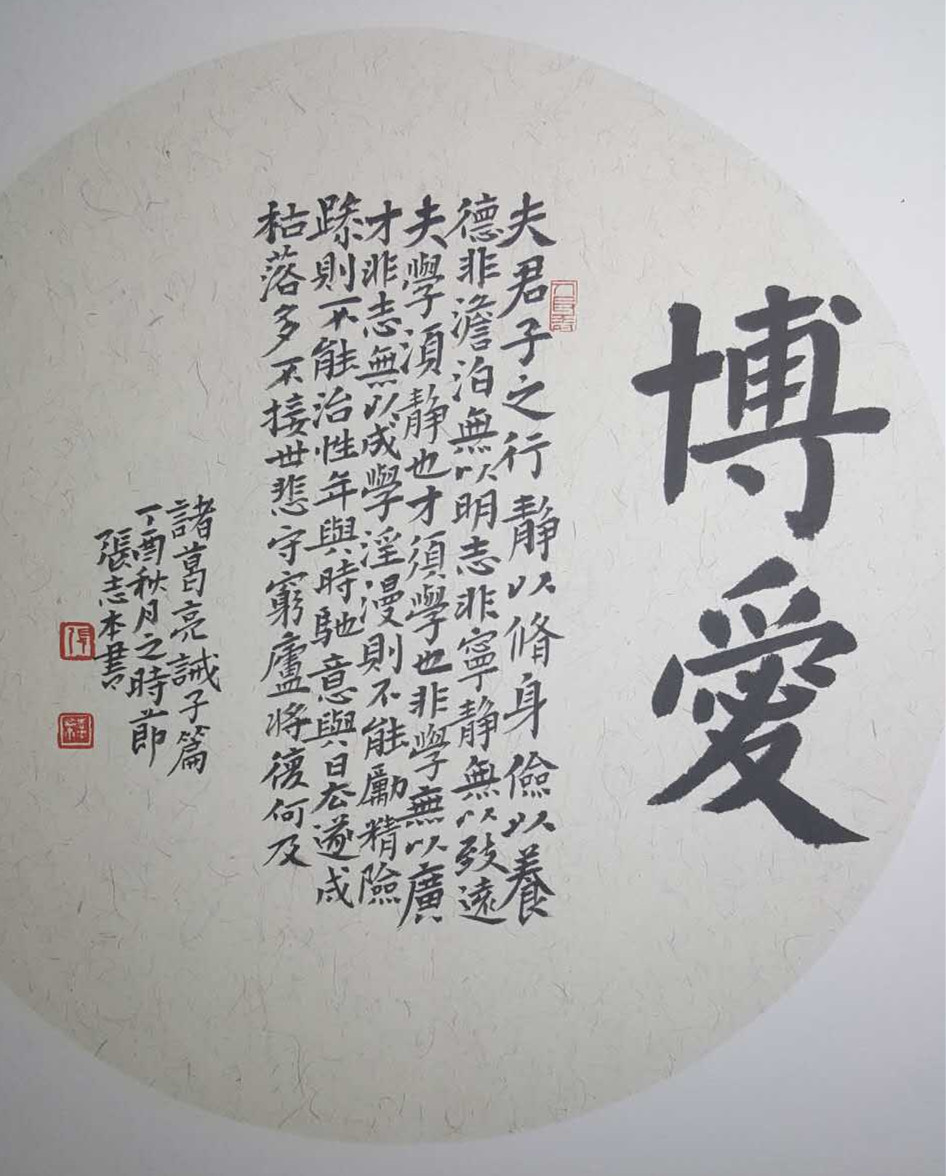 博愛
夫君子之行静以脩身儉以養
德非澹泊無以明志非寧静無以致遠
夫學須静也才須學也非學無以廣
才非志無以成學淫漫則不能勵精險
躁則不能治性年與時馳意與日去遂成
枯落多不接世悲守窮廬將復何及
諸葛亮誡子篇
丁酉秋月之時節
張志本書